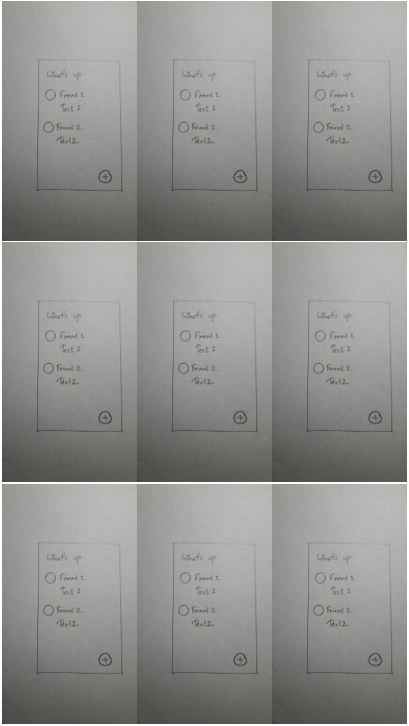 What's up
Friend 1
Text 1
Friend 2
Text 2
+
What's up
Friend 1
Text 1
Friend 2
Text 2
+
What's up
Friend 1
Text 1
Friend 2
Text 2
+
What's up
Friend 1
Text 1
Friend 2
Text 2
+
What's up
Friend 1
Text 1
Friend 2
Text 2
+
What's up
Friend 1
Text 1
Friend 2
Text 2
+
What's up
Friend 1
Text 1
Friend 2
Text 2
+
What's up
Friend 1
Text 1
Friend 2
Text 2
+
What's up
Friend 1
Text 1
Friend 2
Text 2
+